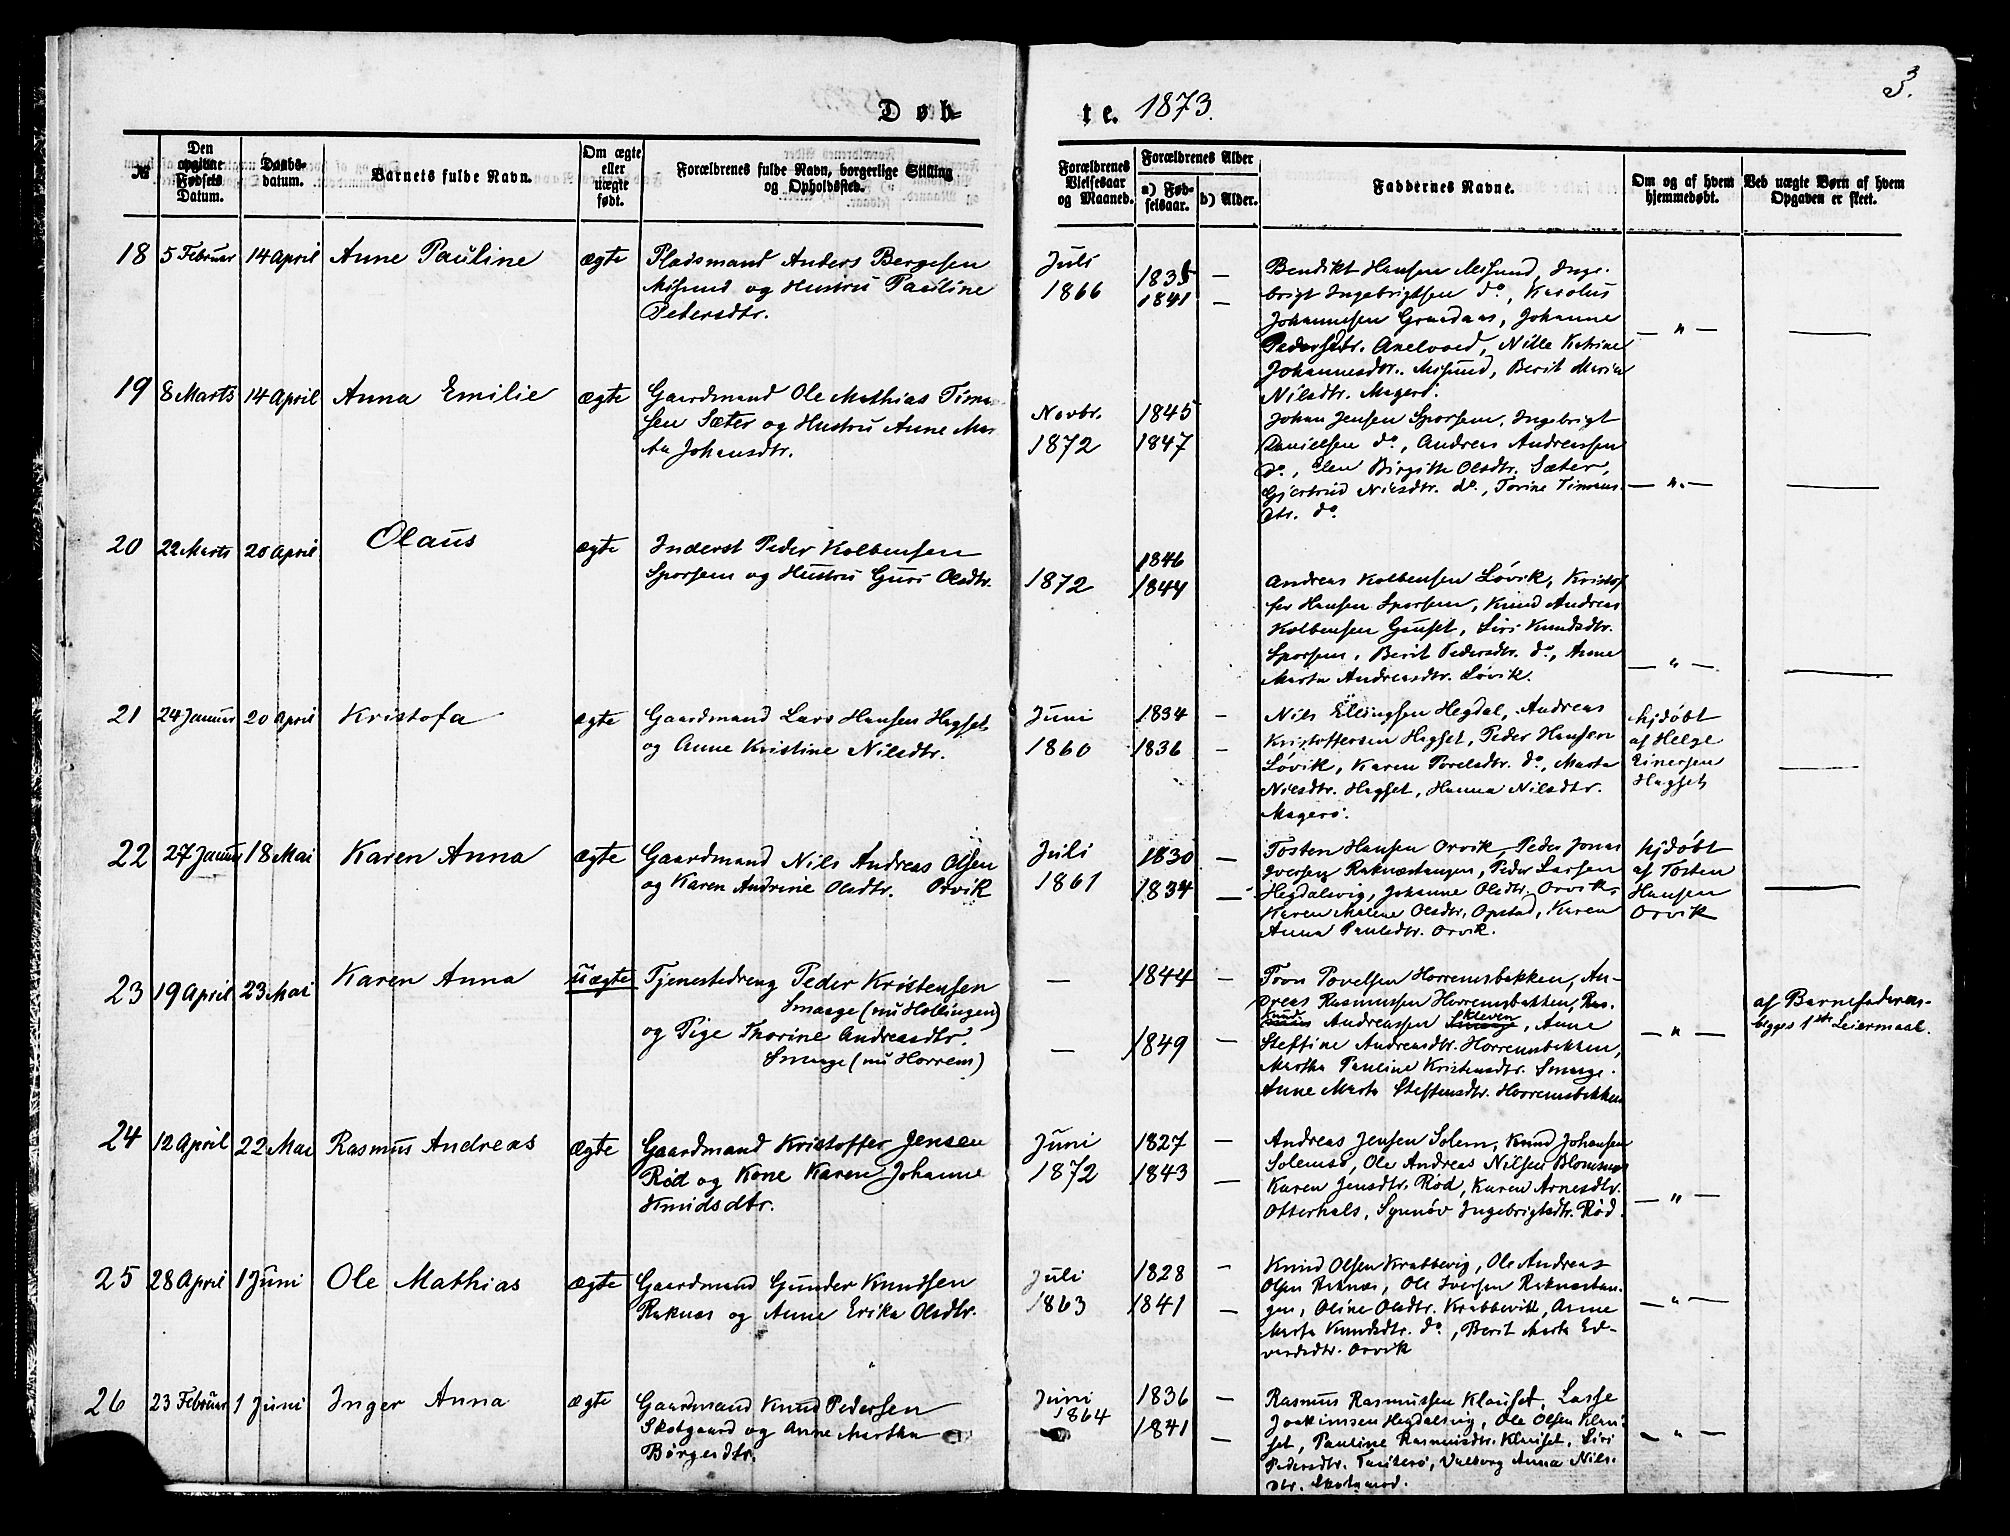 3.
Døb-
te. 1873.
№
Den opgivne Fødsels Datum.
Daabs-datum.
Barnets fulde Navn.
Om ægte eller uægte født.
Forældrenes fulde Navn, borgerlige Stilling og Opholdssted.
Forældrenes Vielsesaar og Maaned.
Forældrenes Alder
a) Fødselsaar.
b) Alder.
Faddernes Navne.
Om og af hvem hjemmedøbt.
Ved uægte Børn af hvem Opgaven er skeet.
18 5 Februar 14 April Anne Pauline ægte
Pladsmand Anders Bergesen
Misund og Hustru Pauline
Pedersdtr.
Juli
1866
1835 —
1841 —
Bendikt Hansen Misund, Inge-
brigt Ingebrigtsen do, Karolus
Johannesen Graadaas, Johanne
Pedersdtr. Axelvold, Nille Katrine
Johannesdtr. Misund, Berit Maria
Nilsdtr. Magerø.
— " —
19 8 Marts 14 April Anna Emilie ægte
Gaardmand Ole Mathias Tims-
sen Sæter og Hustru Anne Mar-
ta Johansdtr.
Novbr.
1872
1845
1847
Johan Jensen Sporsem, Ingebrigt
Danielsen do, Andreas Andreassen
do, Elen Birgitte Olsdtr. Sæter,
Gjertrud Nilsdtr. do, Torine Timens-
dtr. do
— " —
20 22 Marts 20 April Olaus ægte
Inderst Peder Kolbensen
Sporsem og Hustru Guri Olsdtr.
1872
1846
1844
Andreas Kolbensen Løvik, Kristof-
fer Hansen Sporsem, Knud Andreas
Kolbensen Gauset, Siri Knudsdtr.
Sporsem, Berit Pedersdtr. do, Anne
Marta Andreasdtr. Løvik.
— " —
21 24 Januar 20 April Kristofa ægte
Gaardmand Lars Hansen Hagset
og Anne Kristine Nilsdtr.
Juni
1860
1834 —
1836 —
Nils Ellingsen Hegdal, Andreas
Kristoffersen Hagset, Peder Hansen
Løvik, Karen Povelsdtr. do, Marta
Nilsdtr. Hagset, Hanna Nilsdtr.
Magerø.
hjdøbt
af Helge
Einersen
Hagset
22 27 Januar 18 Mai Karen Anna ægte
Gaardmand Nils Andreas Olsen
og Karen Andrine Olsdtr. Orvik
Juli
1861
1830 —
1834 —
Tosten Hansen Orvik, Peder Jonas
Iversen Raknestangen, Peder Larsen
Hegdalsvig, Johanne Olsdtr. Orvik,
Karen Malene Olsdtr. Opstad, Karen
Anna Paulsdtr. Orvik.
hjdøbt
af Tosten
Hansen
Orvik
23 19 April 23 Mai Karen Anna uægte
Tjenestedreng Peder Kristensen
Smaage (nu Hollingen)
og Pige Thorine Andreasdtr.
Smaage (nu Horrem)
—
—
1844 —
1849 —
Povelsen Horremsbakken, An-
dreas Rasmussen Horremsbakken, Ras.
Knud Andreassen Kleven, Anne
Steffine Andreasdtr. Horremsbakken,
Martha Pauline Kristensdtr. Smaage.
Anne Marta Steffensdtr. Horremsbakken
— " —
af Barnefaderen-
begges 1ste Leiermaal.
24 12 April 22 Mai Rasmus Andreas ægte
Gaardmand Kristoffer Jensen
Rød og Kone Karen Johanne
Knudsdtr.
Juni
1872
1827 —
1843 —
Andreas Jensen Solem, Knud Johansen
Solemsø, Ole Andreas Nilsen Blomsnes
Karen Jensdtr. Rød, Karen Arnesdtr.
Otterhals, Synnøv Ingebrigtsdtr. Rød.
— " —
25 28 April 1 Juni Ole Mathias ægte
Gaardmand Gunder Knudsen
Raknæs og Anne Erika Olsdtr.
Juli
1863
1828 —
1841 —
Knud Olsen Krabbevig, Ole Andreas
Olsen Raknæs, Ole Iversen Raknestan-
gen, Oline Olsdtr. Krabbevik, Anne
Marta Knudsdtr. do, Berit Marta Ed-
vardsdtr. Orvik
— " —
26 23 Februar 1 Juni Inger Anna ægte
Gaardmand Knud Pedersen
Skotgaard og Anne Martha
Børgesdtr.
Juni
1864
1836 —
1841 —
Rasmus Rasmussen Klauset, Lasse
Joakimsen Hegdalsvig, Ole Olsen Klau-
set, Pauline Rasmusdtr. Klauset, Siri
Pedersdtr. Tautterø, Valborg Anna Nils-
dtr. Skotgaard.
— " —